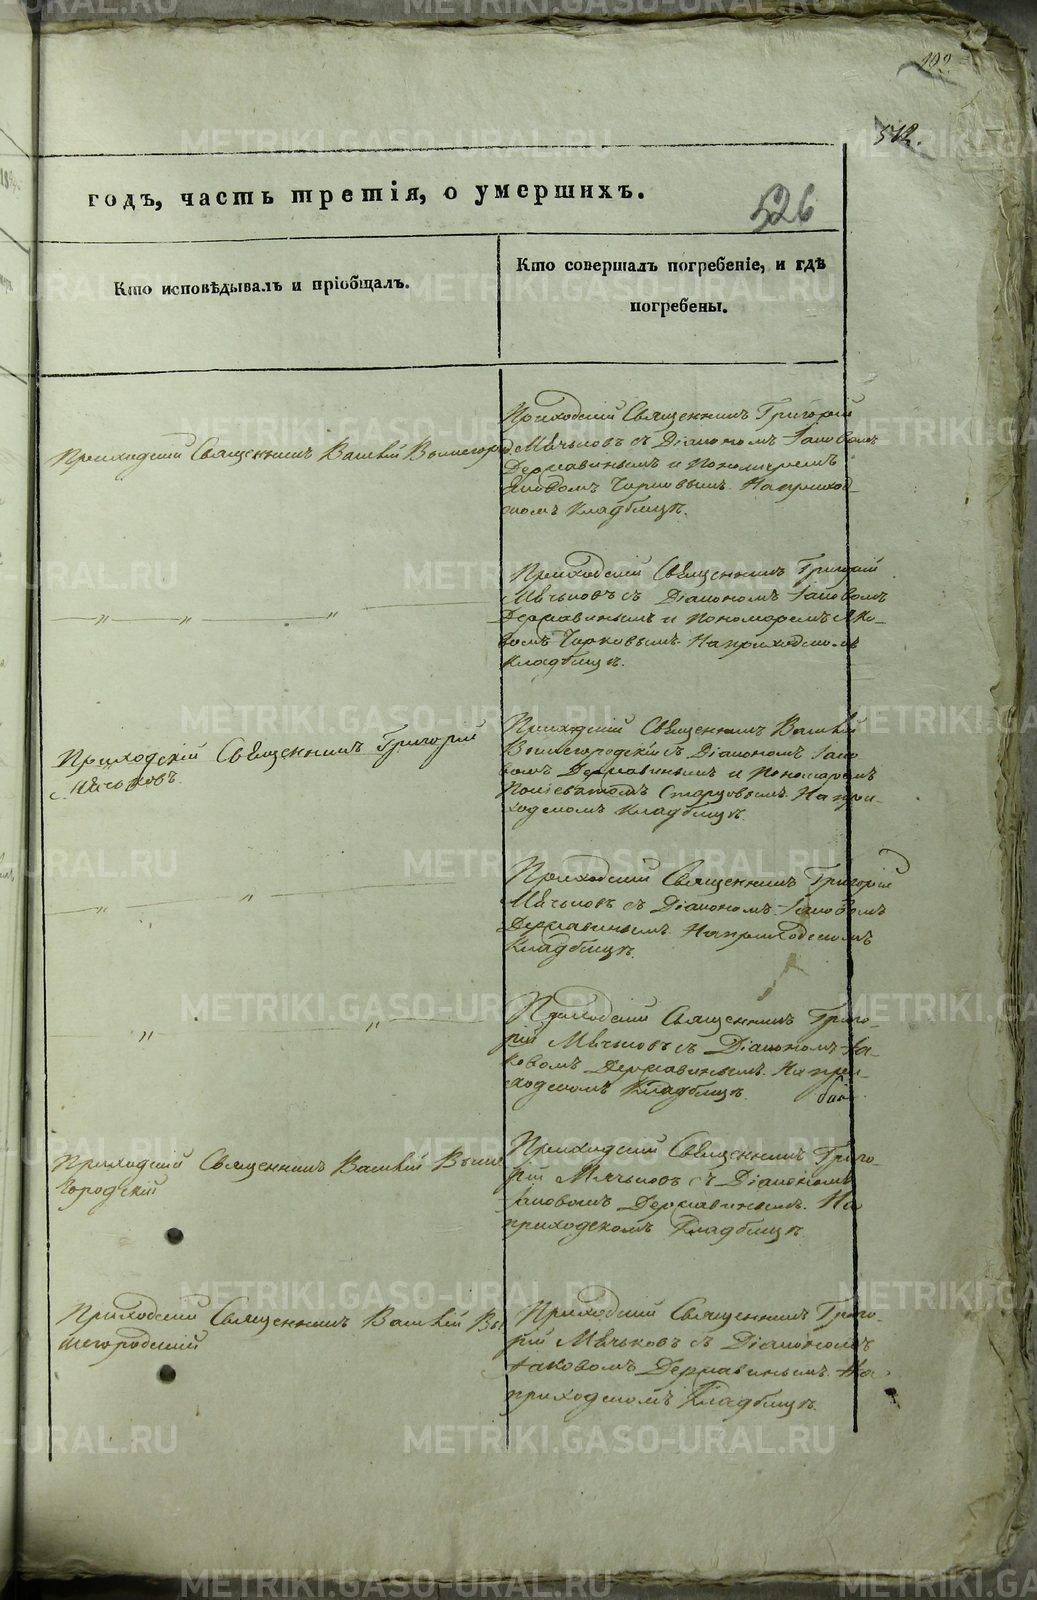 192
512.
годъ, часть третія, о умершихъ.
526
Кто исповѣдывалъ и пріобщалъ.
Кто совершалъ погребеніе, и гдѣ
погребены.
Приходскій Священникъ Василій Вышегород
Приходскій Священникъ Григорій
Мячьковъ съ Діакономъ Іаковомъ
Державинымъ и Пономаремъ
Яковомъ Чирковымъ. На приход-
скомъ Кладбищѣ.
— „ — „ — „ —
Приходскій Священникъ Григорій
Мячьковъ съ Діакономъ Іаковомъ
Державинымъ и Пономаремъ Яко-
вомъ Чирковымъ. На приходскомъ
Кладбищѣ.
Приходскій Священникъ Григорій
Мячьковъ.
Приходскій Священникъ Василій
Вышегородскій съ Діакономъ Іако
вомъ Державинымъ и Пономаремъ
Старцовымъ. На при-
ходскомъ Кладбищѣ.
— „ — „ —
Приходскій Священникъ Григорій
Мячьковъ съ Діакономъ Іаковомъ
Державинымъ. На приходскомъ
Кладбищѣ.
— „ — „ —
Приходскій Священникъ Григо-
рій Мячьковъ съ Діакономъ Іа-
ковомъ Державинымъ. На при-
ходскомъ Кладбищѣ.
Приходскій Священникъ Василій Выше
городскій
Приходскій Священникъ Григо-
рій Мячьковъ съ Діакономъ
Іаковомъ Державинымъ. На
приходскомъ Кладбищѣ.
Приходскій Священникъ Василій Вы
шегородскій
Приходскій Священникъ Григо-
рій Мячьковъ съ Діакономъ
Іаковомъ Державинымъ. На
приходскомъ Кладбищѣ.
METRIKI.GASO-URAL.RU